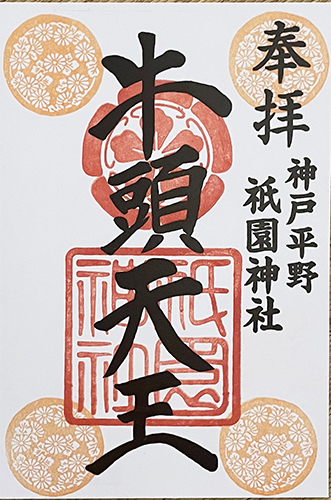 奉拝
神戸平野
祇園神社
牛頭天王
祇園神社